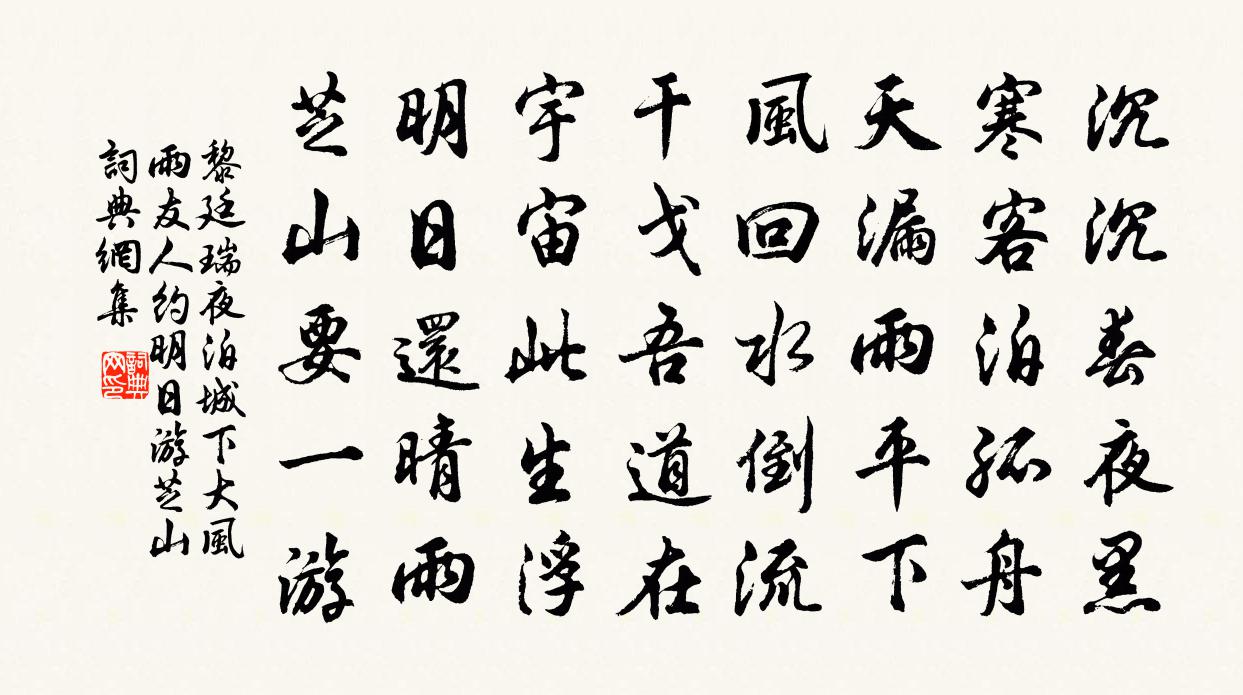 沉沉春夜黑
寒客泊孤舟
天漏雨平下
風回水倒流
干戈吾道在
宇宙此生浮
明日還晴雨
芝山要一游
黎廷瑞夜泊城下大風
雨友人約明日游芝山
詞典網集
詞典网印